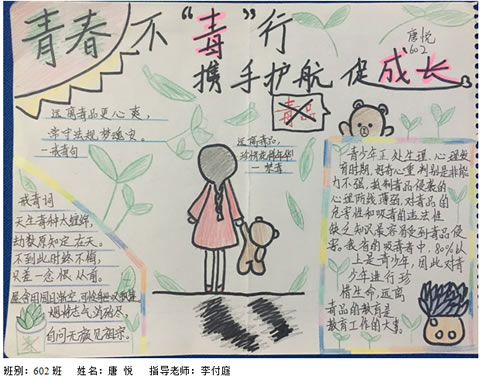 青春不“毒”行
携手护航 促成长
唐悦
602
毒品
远离毒品更心爽,
遵守法规梦缘安。
远离毒品,
珍惜花样年华
一禁毒
戒毒词
天生毒种大
劫数原知定在天。
不到此时终不悔,
只差一念恨从前。
烟持志气消功尽,
自问无颜见祖宗。
青少年正处生理、心理发
育时期,好奇心重,判别是非能
力不强,抵制毒品侵袭的
心理防线薄弱,对毒品的
危害性和吸毒的违法性
缺乏知识最容易受到毒品侵
害。我省的吸毒者中,80%以
上是青少年,因此对青
少年进行珍
惜生命,远离
毒品的教育是
教育工作的大事。
班别:602班 姓名:唐 悦 指导老师:李付庭